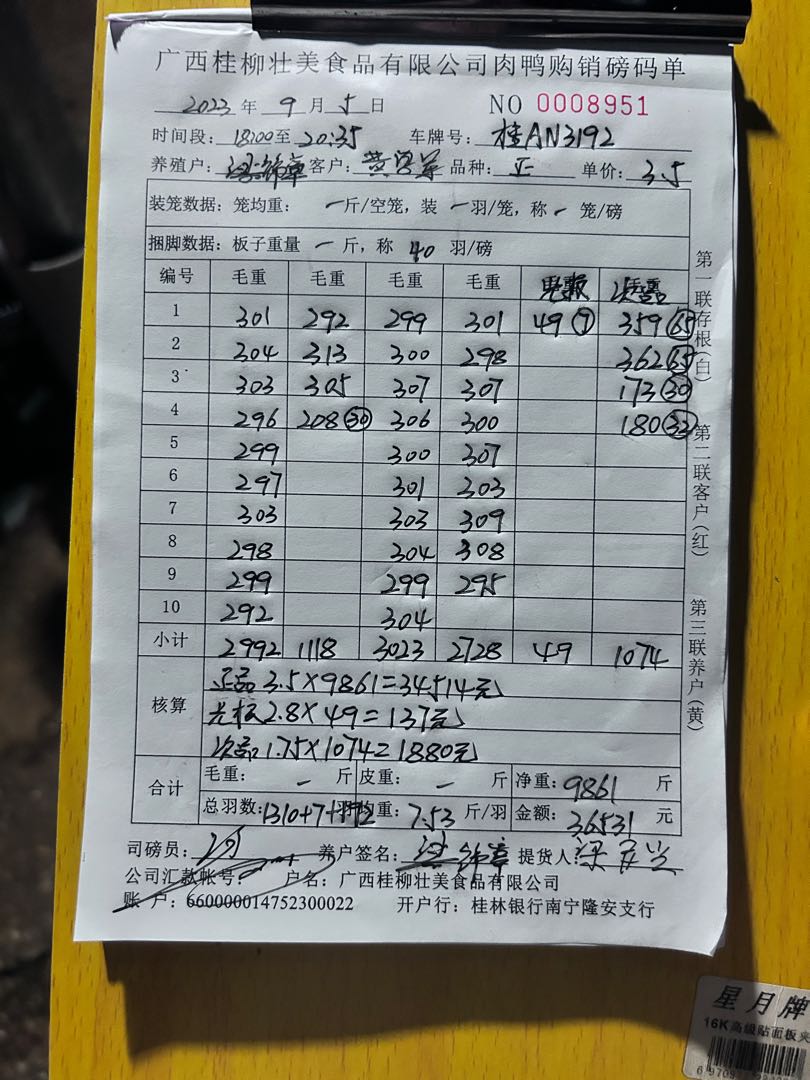 广西桂柳壮美食品有限公司肉鸭购销磅码单
2023年9月5日 NO 0008951
时间段：18:00至20:35 车牌号：桂AN3192
养殖户： 客户：黄 品种：正 单价：3.5
装笼数据：笼均重：一斤/空笼，装一羽/笼，称一笼/磅
捆脚数据：板子重量一斤，称40羽/磅
编号 毛重 毛重 毛重 毛重 次品
1 301 292 299 301 49⑦ 359(65)
2 304 313 300 298 362(65)
3 303 305 307 307 173(30)
4 296 208(30) 306 300 180(32)
5 299 300 307
6 297 301 303
7 303 303 309
8 298 304 308
9 299 299 295
10 292 304
小计 2992 1118 3023 2728 49 1074
核算
正品3.5×9861=34514元
2.8×49=137元
次品1.75×1074=1880元
合计
毛重：一斤 皮重：一斤 净重：9861斤
总羽数：1310+7+192 均重：7.53斤/羽 金额：36531元
司磅员： 养户签名： 提货人：梁
公司汇款帐号： 户名：广西桂柳壮美食品有限公司
账户：660000014752300022 开户行：桂林银行南宁隆安支行
第一联存根（白）
第二联客户（红）
第三联养户（黄）
星月牌
16K高级贴面板夹